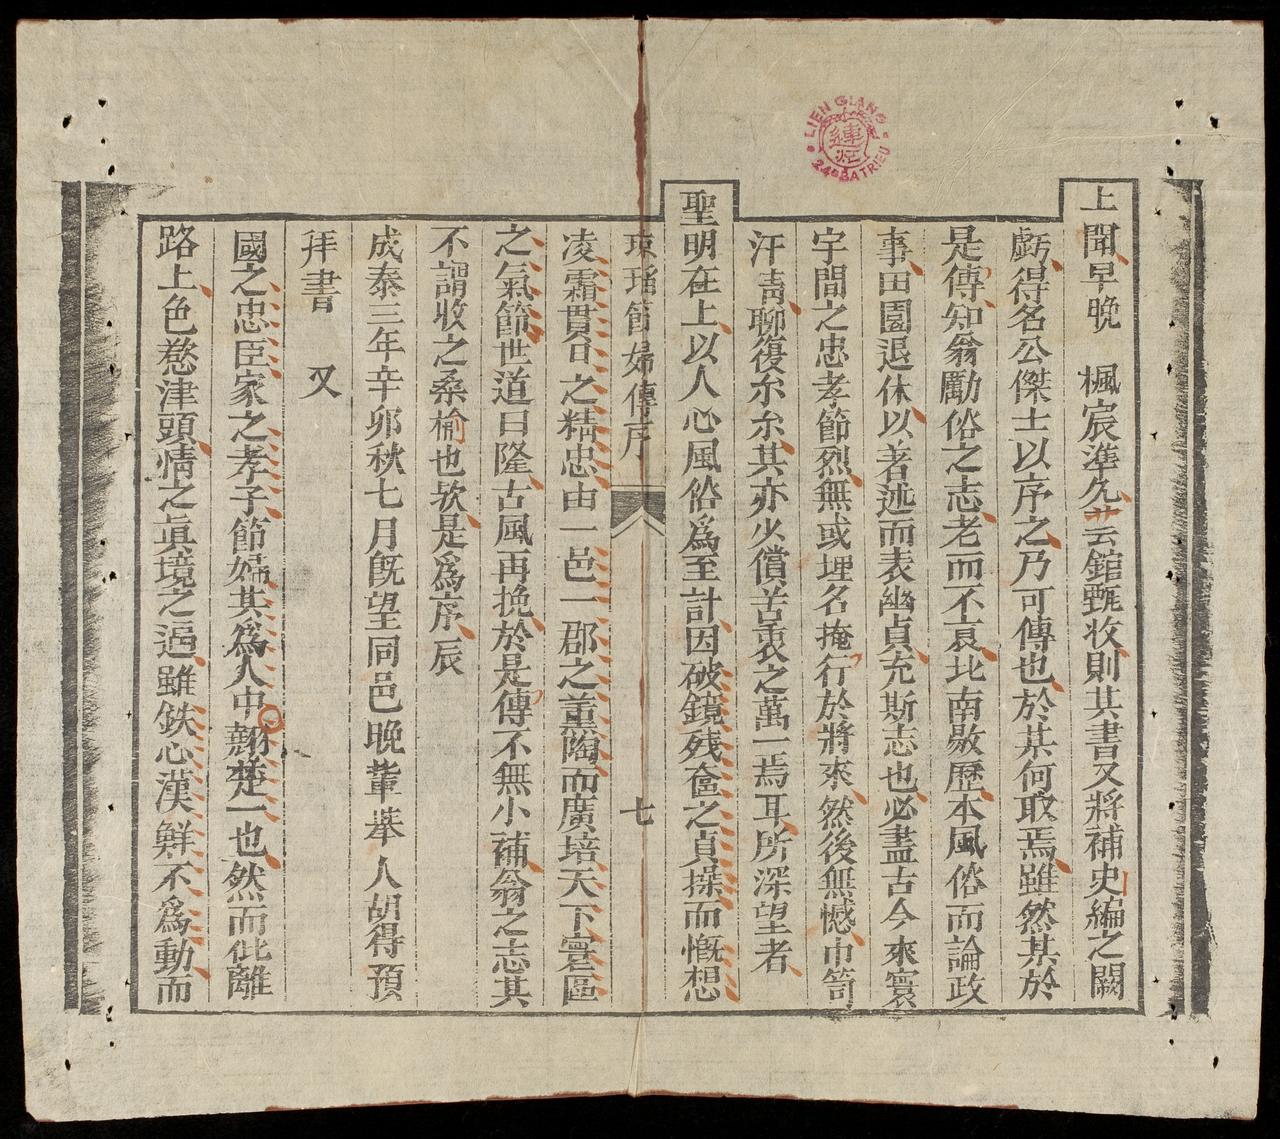 上聞早晚　楓宸準允芸舘甄收則其書又將補史編之闕
虧得名公傑士以序之乃可傳也於某何取焉雖然某於
是傳知翁勵俗之志老而不衰北南敭歷本風俗而論政
事田園退休以著述而表幽貞充斯志也必盡古今來寰
宇間之忠孝節烈無或埋名掩行於將來然後無憾巾笥
汗青聊復尒尒其亦少償苦衷之萬一焉耳所深望者
聖明在上以人心風俗爲至計因破鏡残奩之貞操而慨想
琼瑤節婦傳序
七
凌霜貫日之精忠由一邑一郡之薰陶而廣培天下寰區
之氣節世道日隆古風再挽於是傳不無小補翁之志其
不謂收之桑榆也欤是爲序辰
成泰三年辛卯秋七月旣望同邑晚輩举人胡得預
拜書　又
國之忠臣家之孝子節婦其爲人中翹楚一也然而仳離
路上色愁津頭情之眞境之逼雖鉄心漢鮮不爲動而
LIEN GIANG
連江
24B BA TRIEU